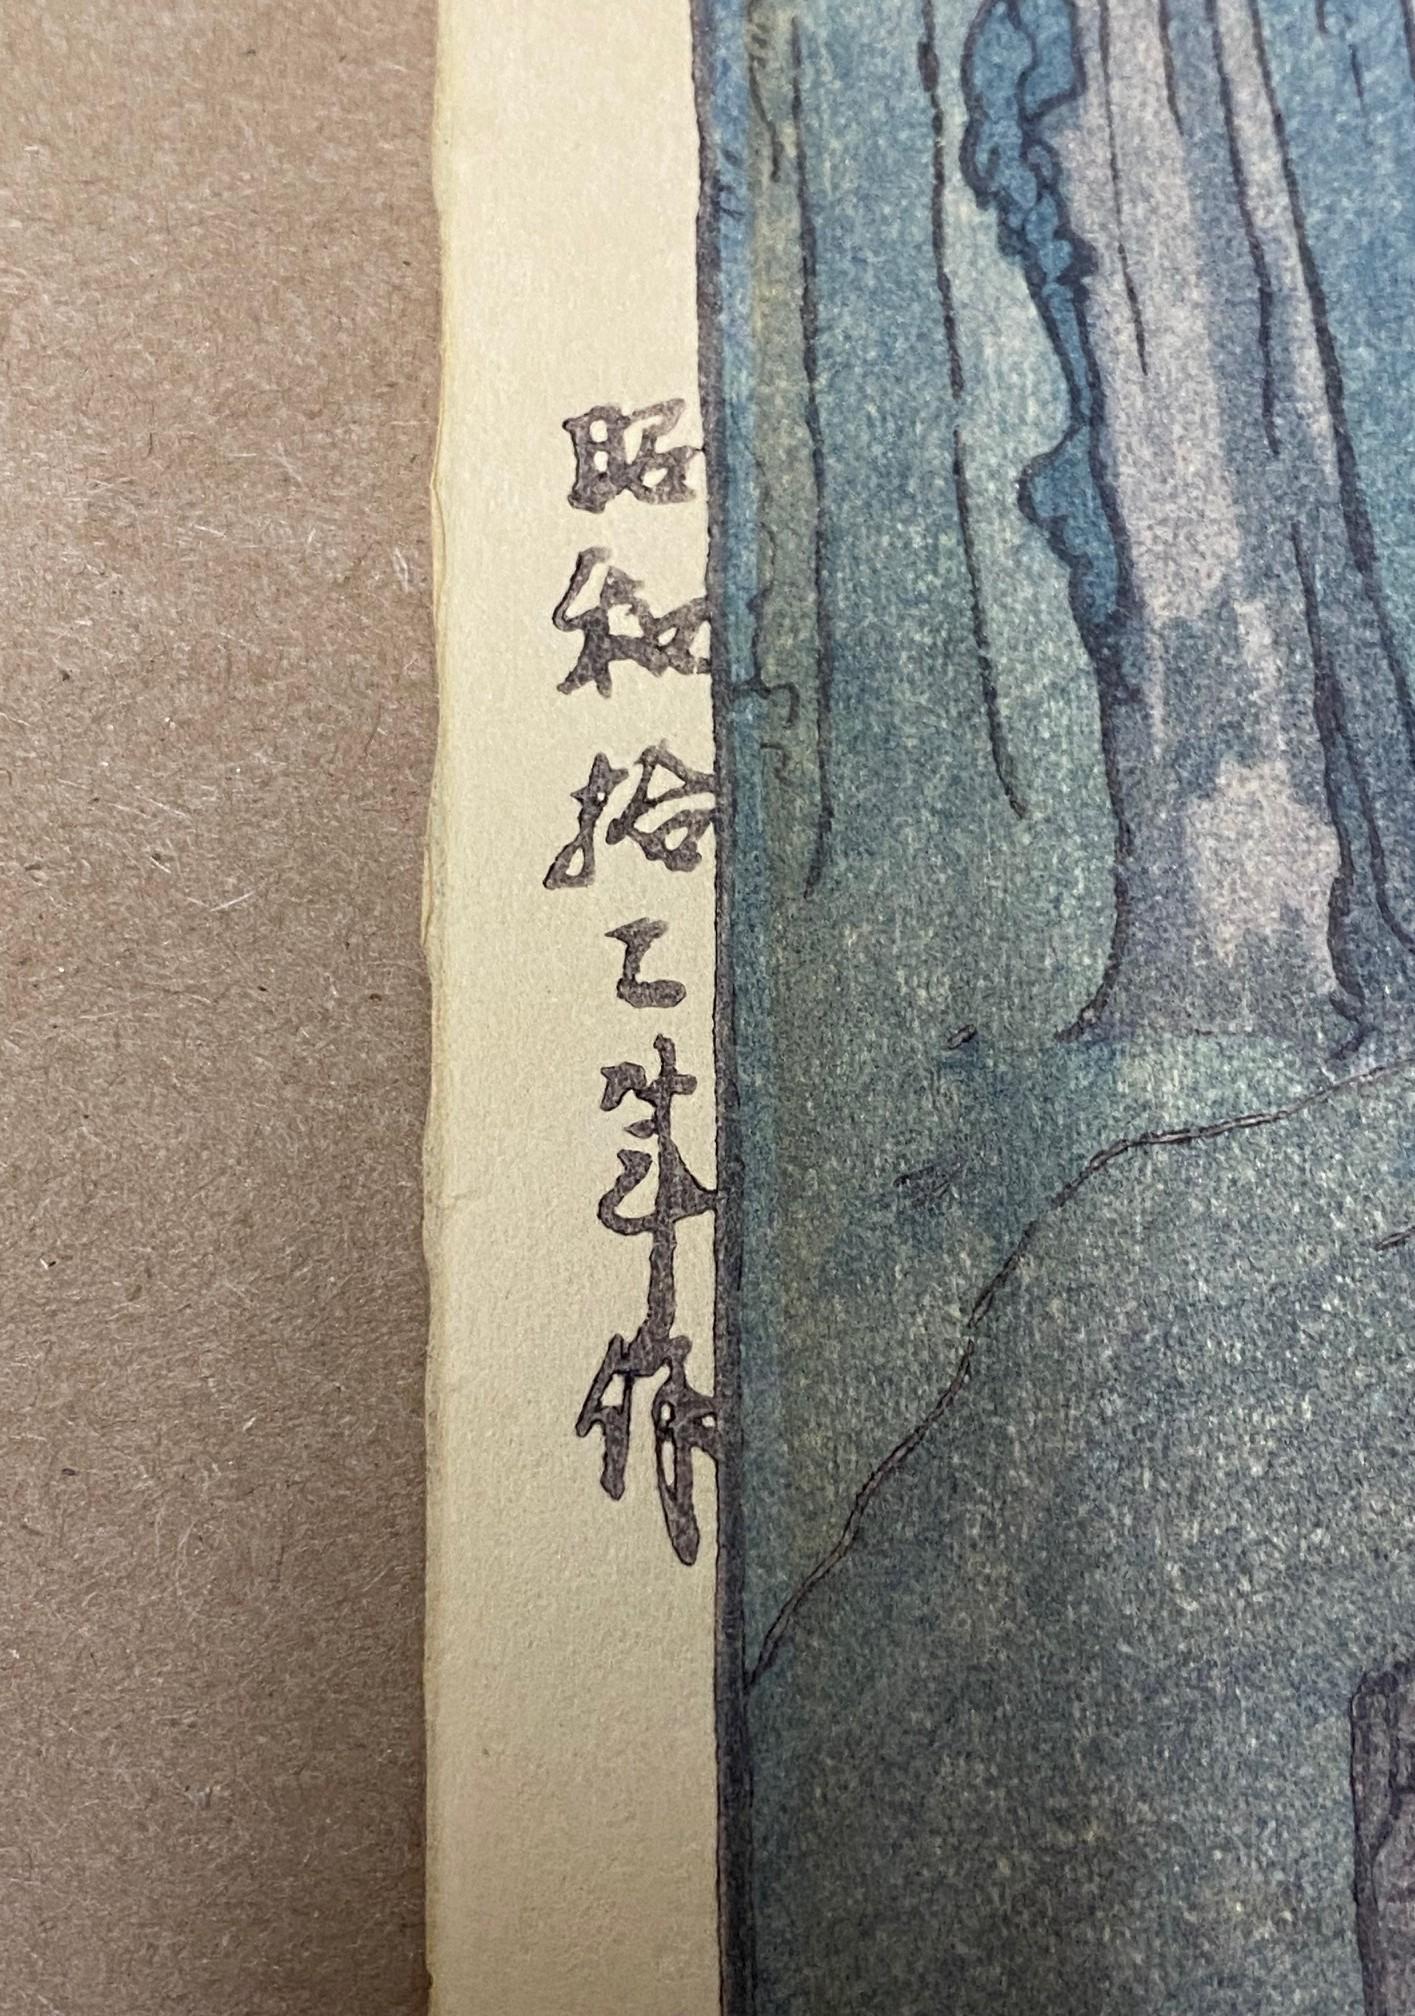 昭和拾二年作